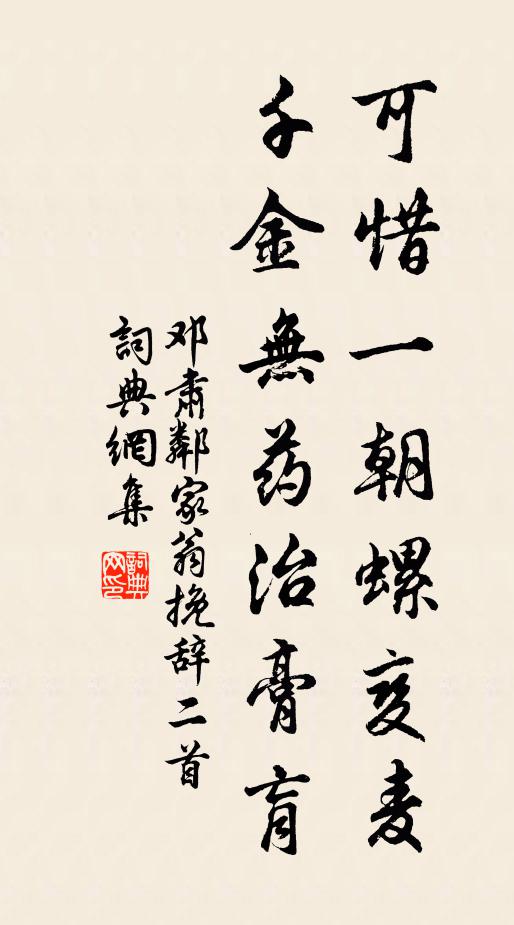 可惜一朝螺变麦
千金無药治膏肓
邓肃鄰家翁挽辞二首
詞典網集
詞典网印